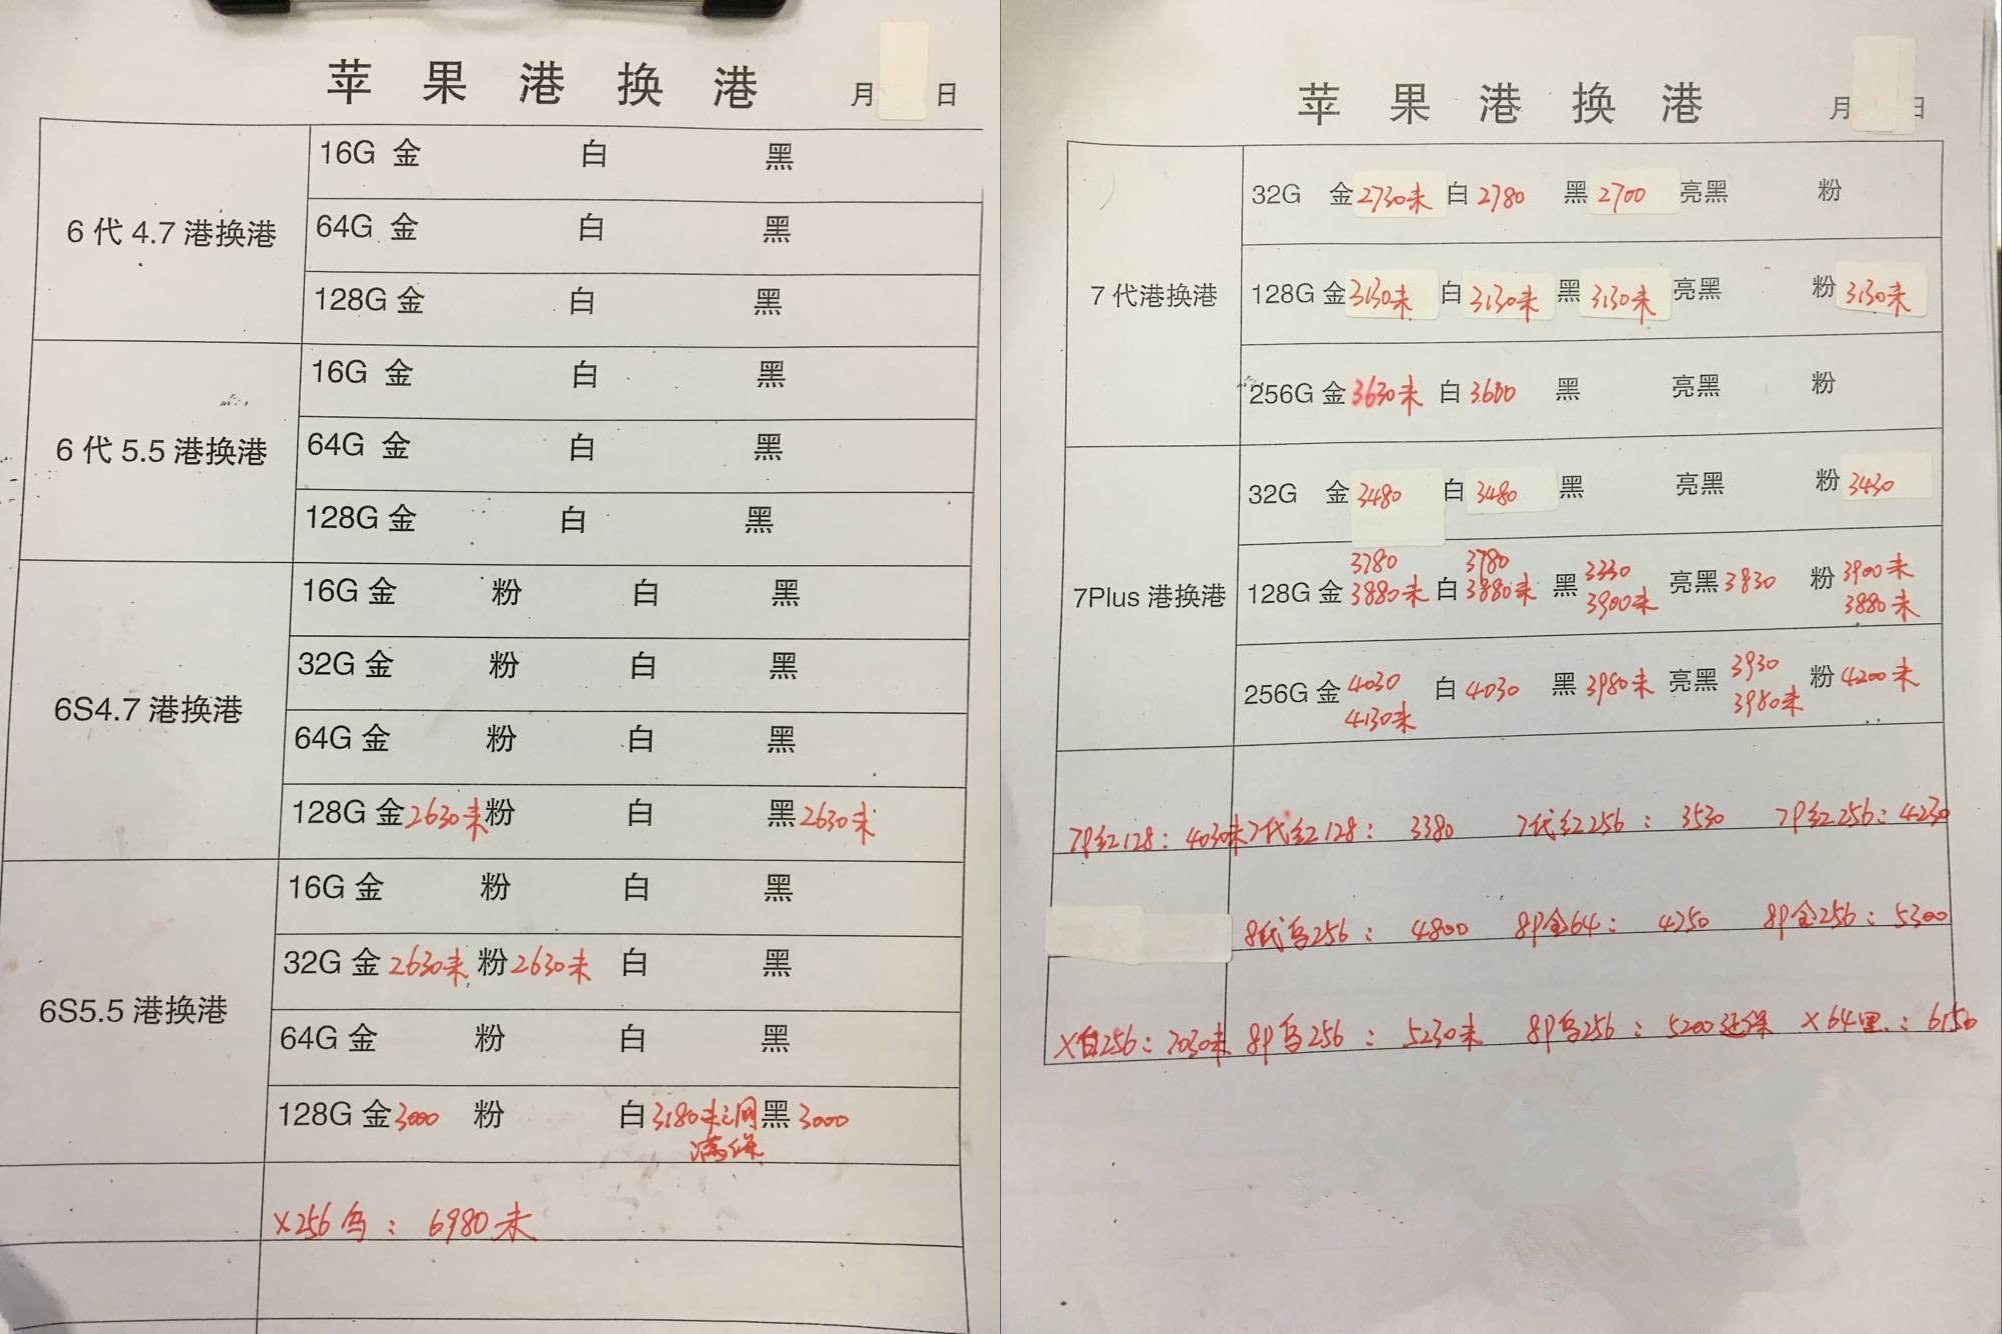 苹果港换港 月 日
6代4.7港换港
16G 金 白 黑
64G 金 白 黑
128G 金 白 黑
6代5.5港换港
16G 金 白 黑
64G 金 白 黑
128G 金 白 黑
6S4.7港换港
16G 金 粉 白 黑
32G 金 粉 白 黑
64G 金 粉 白 黑
128G 金 2630未 粉 白 黑 2630未
6S5.5港换港
16G 金 粉 白 黑
32G 金 2630未 粉 2630未 白 黑
64G 金 粉 白 黑
128G 金 3000 粉 白 3180未三网 黑 3000
满保
X256乌：6980未
苹果港换港 月 日
7代港换港
32G 金 2730未 白 2780 黑 2700 亮黑 粉
128G 金 3130未 白 3130未 黑 3130未 亮黑 粉 3130未
256G 金 3630未 白 3600 黑 亮黑 粉
7Plus港换港
32G 金 3480 白 3480 黑 亮黑 粉 3430
3780 3780
128G 金 3880未 白 3880未 黑 3900未 亮黑 3830 粉 3900未
3880未
256G 金 4030 白 4030 黑 3980未 亮黑 3930 粉 4200未
4130未 3980未
7P红128：4030未 7代红128：3380 7代红256：3530 7P红256：4230
8代乌256：4800 8P金64：4250 8P金256：5300
X白256：7030未 8P乌256：5230未 8P乌256：5200延保 X64黑：6150